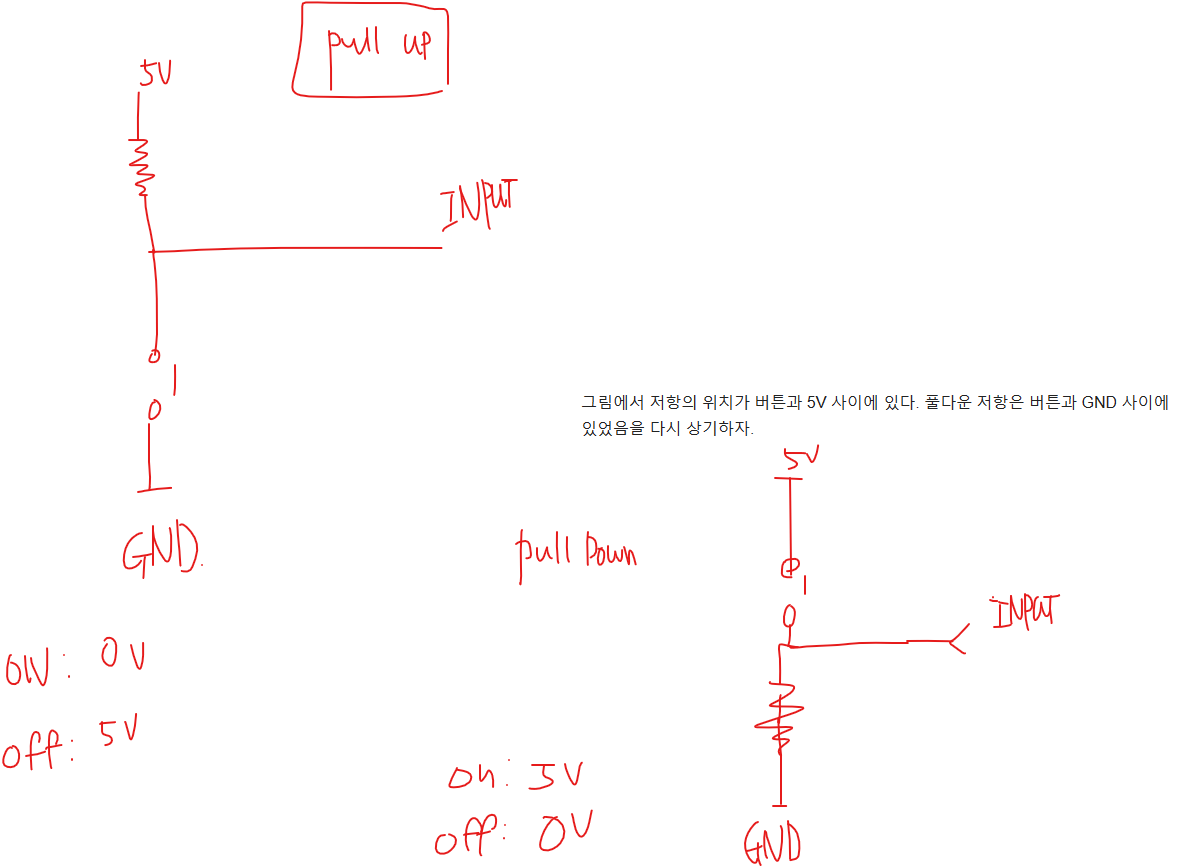 pull up
5V
INPUT
GND.
ON: 0V
off: 5V
그림에서 저항의 위치가 버튼과 5V 사이에 있다. 풀다운 저항은 버튼과 GND 사이에
있었음을 다시 상기하자.
pull Down
5V
INPUT
GND
on: 5V
off: 0V